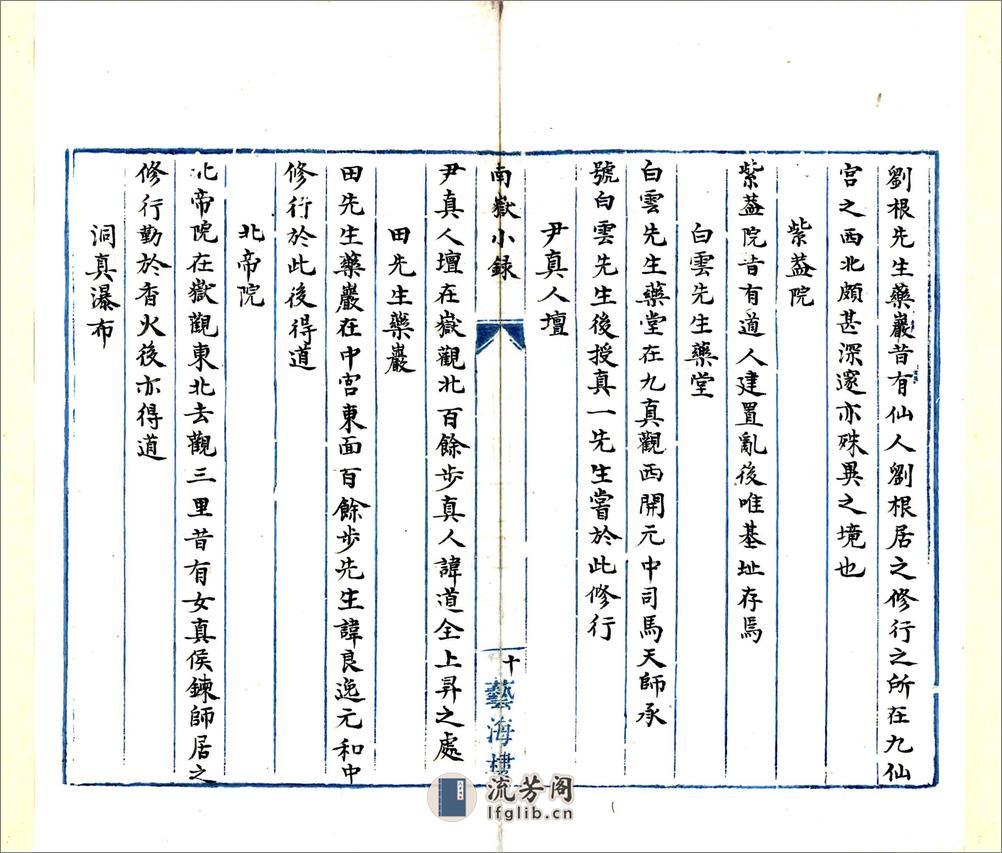 劉根先生藥巖昔有仙人劉根居之修行之所在九仙
宮之西北頗甚深邃亦殊異之境也
紫蓋院
紫蓋院昔有道人建置亂後唯基址存焉
白雲先生藥堂
白雲先生藥堂在九真觀西開元中司馬天師承
號白雲先生後授真一先生嘗於此修行
尹真人壇
南嶽小録
十
藝海樓
尹真人壇在嶽觀北百餘步真人諱道全上昇之處
田先生藥巖
田先生藥巖在中宮東面百餘步先生諱良逸元和中
修行於此後得道
北帝院
北帝院在嶽觀東北去觀三里昔有女真侯鍊師居之
修行勤於香火後亦得道
洞真瀑布
流芳阁
lfglib.cn